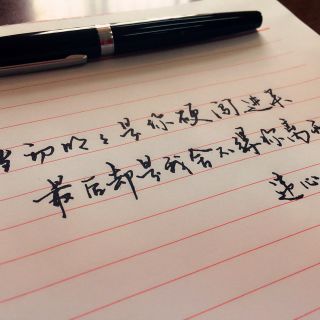 当初明明是你硬闯进来
最后却是我舍不得你离开
迷心